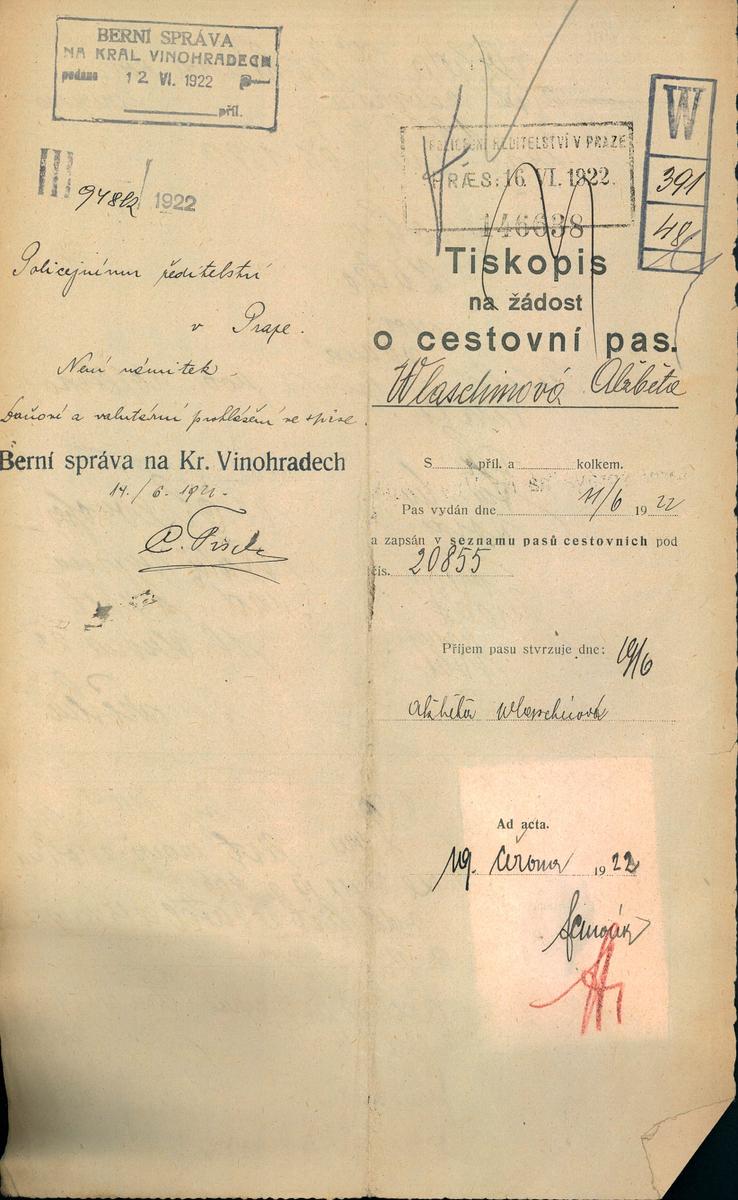 BERNÍ SPRÁVA
NA KRÁL VINOHRADECH
podáno 12. VI. 1922
příl.
III 1922
Policejnímu ředitelství
v Praze.
Není námitek.
Daňové a valutární prohlášení ve spise.
Berní správa na Kr. Vinohradech
14./6. 1922.
POLICEJNÍ ŘEDITELSTVÍ V PRAZE
PRÆS: 16. VI. 1922.
146638
W
391
48
Tiskopis
na žádost
o cestovní pas.
Wlaschinová Alžběta
S příl. a kolkem.
Pas vydán dne /6 1922
a zapsán v seznamu pasů cestovních pod
čís. 20855
Příjem pasu stvrzuje dne: 19/6
Alžběta Wlaschinová
Ad acta.
19. června 1922